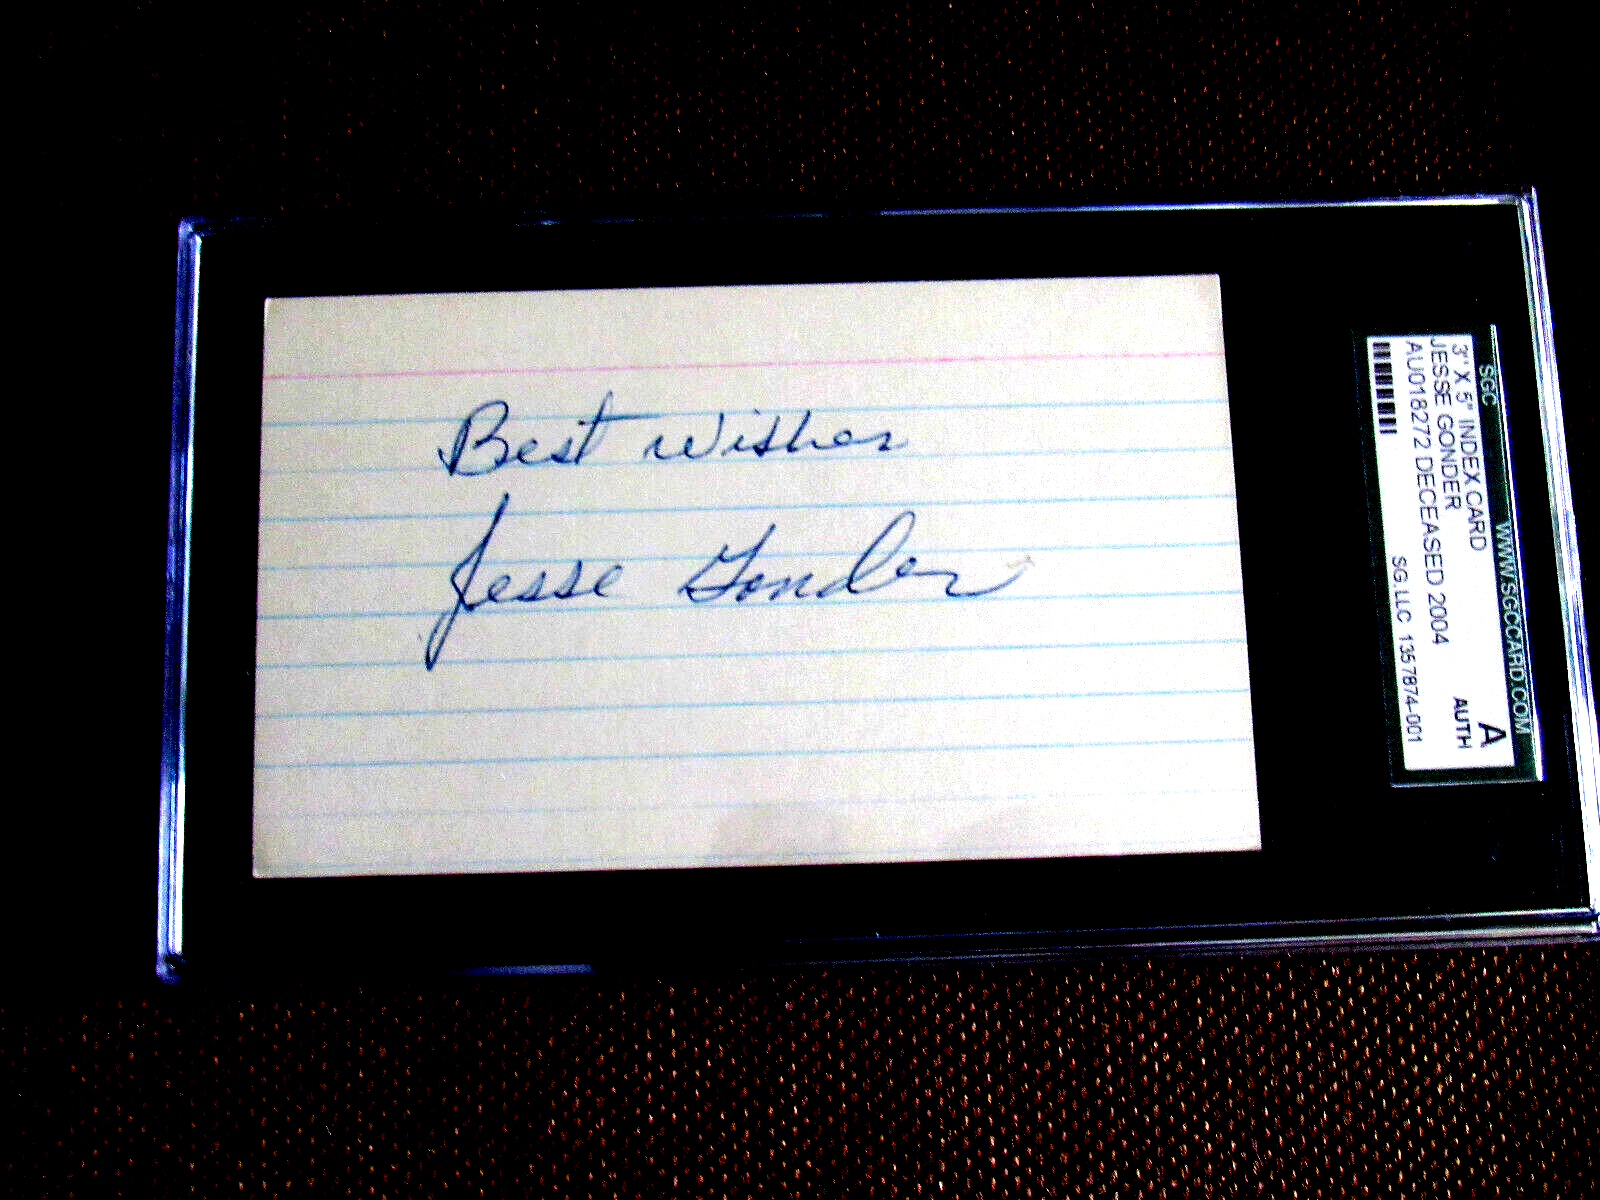 Best wishes
Jesse Gonder
SGC WWW.SGCCARD.COM
3" X 5" INDEX CARD
JESSE GONDER
AU018272 DECEASED 2004
A
AUTH
SG LLC 1357874-001